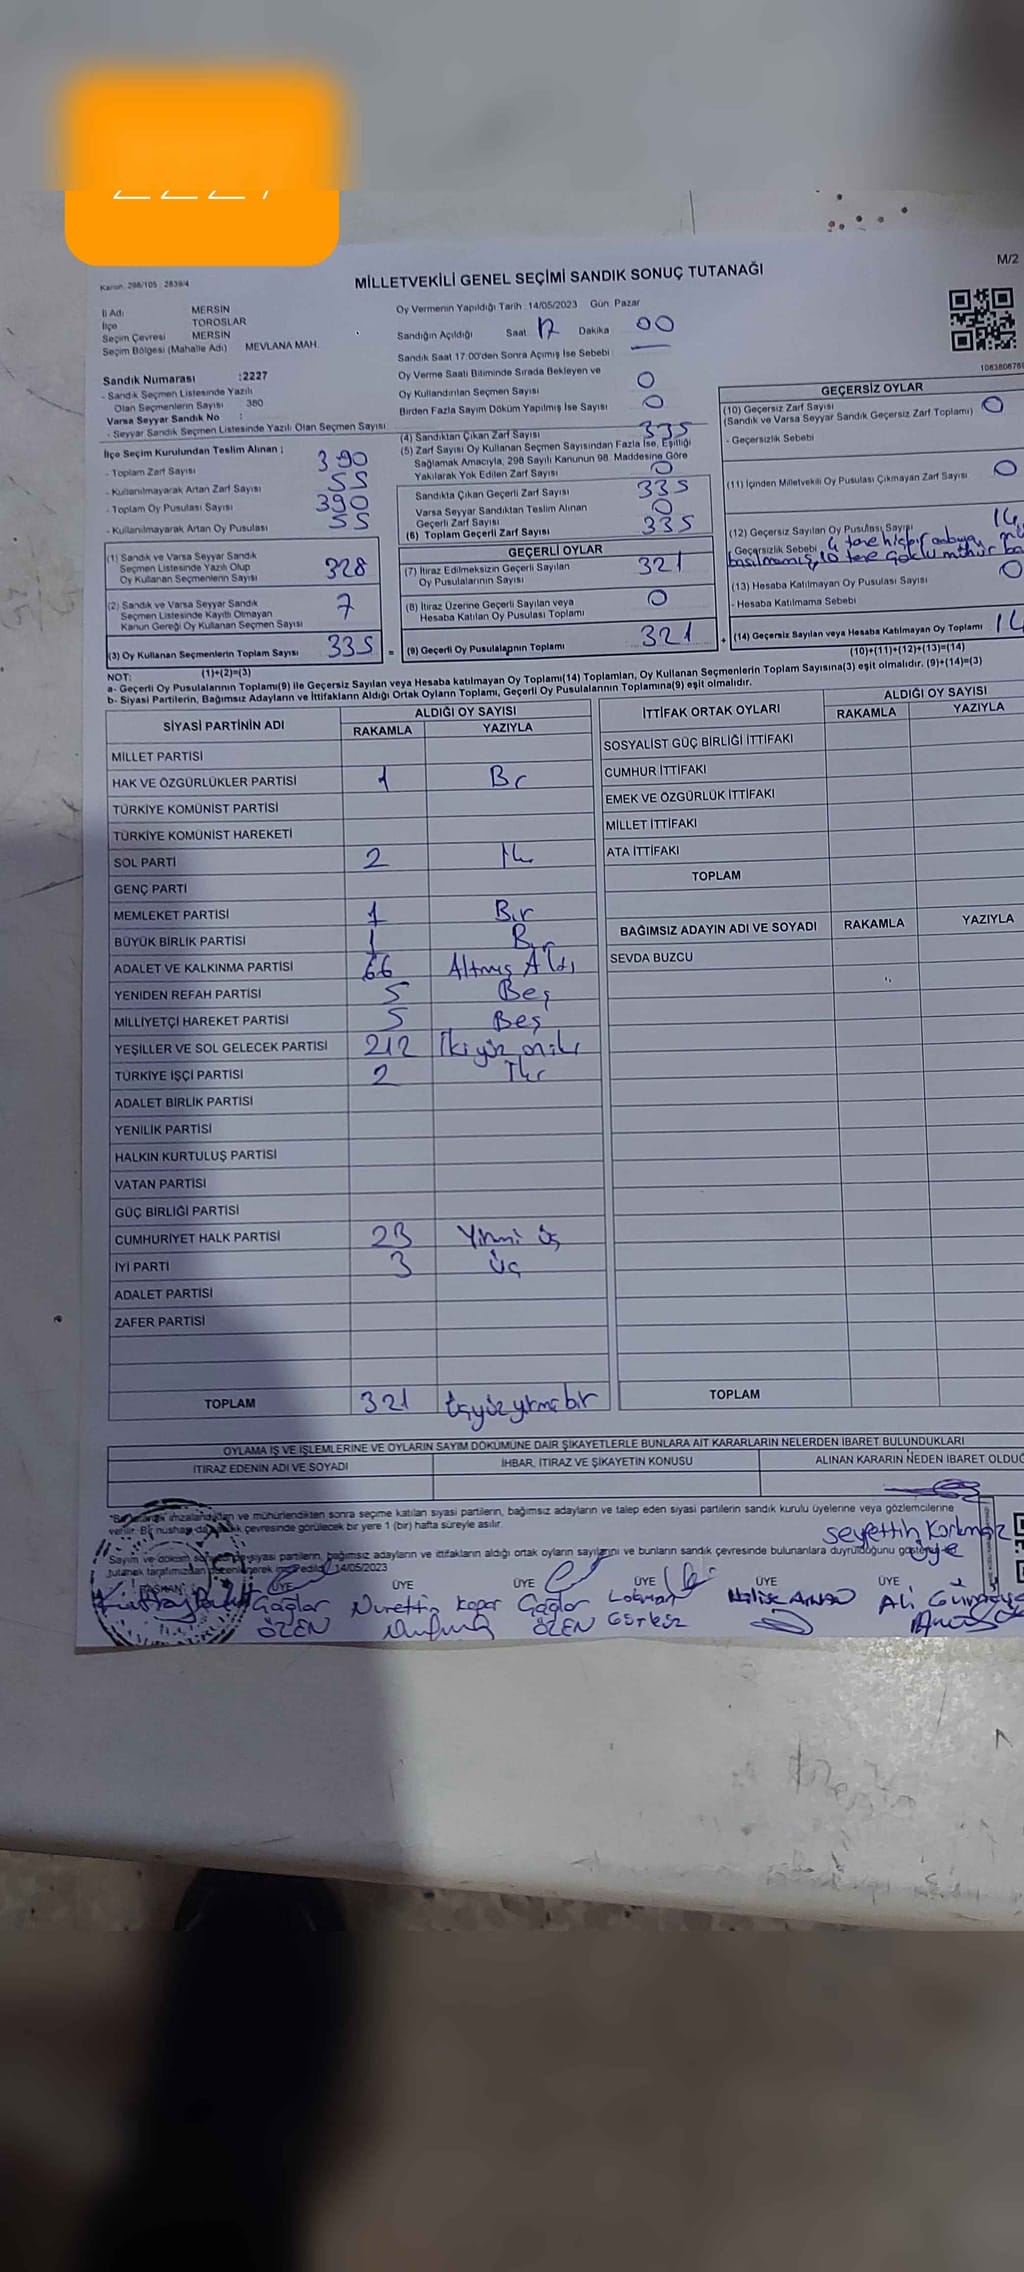 2227
MİLLETVEKİLİ GENEL SEÇİMİ SANDIK SONUÇ TUTANAĞI
M/2
Kanun: 298/105 2839/4
İl Adı MERSİN
İlçe TOROSLAR
Seçim Çevresi MERSİN
Seçim Bölgesi (Mahalle Adı) MEVLANA MAH.
Sandık Numarası :2227
- Sandık Seçmen Listesinde Yazılı
Olan Seçmenlerin Sayısı : 380
Varsa Seyyar Sandık No :
- Seyyar Sandık Seçmen Listesinde Yazılı Olan Seçmen Sayısı
Oy Vermenin Yapıldığı Tarih : 14/05/2023 Gün: Pazar
Sandığın Açıldığı Saat 17 Dakika 00
Sandık Saat 17:00'den Sonra Açımış İse Sebebi
Oy Verme Saati Bitiminde Sırada Bekleyen ve
Oy Kullandırılan Seçmen Sayısı 0
Birden Fazla Sayım Döküm Yapılmış İse Sayısı 0
İlçe Seçim Kurulundan Teslim Alınan ;
- Toplam Zarf Sayısı 390
- Kullanılmayarak Artan Zarf Sayısı 55
- Toplam Oy Pusulası Sayısı 390
- Kullanılmayarak Artan Oy Pusulası 55
(1) Sandık ve Varsa Seyyar Sandık
Seçmen Listesinde Yazılı Olup
Oy Kullanan Seçmenlerin Sayısı 328
(2) Sandık ve Varsa Seyyar Sandık
Seçmen Listesinde Kayıtlı Olmayan
Kanun Gereği Oy Kullanan Seçmen Sayısı 7
(3) Oy Kullanan Seçmenlerin Toplam Sayısı 335
(1)+(2)=(3)
(4) Sandıktan Çıkan Zarf Sayısı 335
(5) Zarf Sayısı Oy Kullanan Seçmen Sayısından Fazla İse, Eşitliği
Sağlamak Amacıyla, 298 Sayılı Kanunun 98. Maddesine Göre
Yakılarak Yok Edilen Zarf Sayısı 0
Sandıkta Çıkan Geçerli Zarf Sayısı 335
Varsa Seyyar Sandıktan Teslim Alınan
Geçerli Zarf Sayısı 0
(6) Toplam Geçerli Zarf Sayısı 335
GEÇERLİ OYLAR
(7) İtiraz Edilmeksizin Geçerli Sayılan
Oy Pusulalarının Sayısı 321
(8) İtiraz Üzerine Geçerli Sayılan veya
Hesaba Katılan Oy Pusulası Toplamı 0
= (9) Geçerli Oy Pusulalarının Toplamı 321
GEÇERSİZ OYLAR
(10) Geçersiz Zarf Sayısı
(Sandık ve Varsa Seyyar Sandık Geçersiz Zarf Toplamı) 0
- Geçersizlik Sebebi
(11) İçinden Milletvekili Oy Pusulası Çıkmayan Zarf Sayısı 0
(12) Geçersiz Sayılan Oy Pusulası Sayısı 14
- Geçersizlik Sebebi 4 tane hiçbir
basılmamış, 10 tane çoklu mühür
(13) Hesaba Katılmayan Oy Pusulası Sayısı 0
- Hesaba Katılmama Sebebi
+ (14) Geçersiz Sayılan veya Hesaba Katılmayan Oy Toplamı 14
(10)+(11)+(12)+(13)=(14)
NOT:
a- Geçerli Oy Pusulalarının Toplamı(9) ile Geçersiz Sayılan veya Hesaba katılmayan Oy Toplamı(14) Toplamları, Oy Kullanan Seçmenlerin Toplam Sayısına(3) eşit olmalıdır. (9)+(14)=(3)
b- Siyasi Partilerin, Bağımsız Adayların ve İttifakların Aldığı Ortak Oyların Toplamı, Geçerli Oy Pusulalarının Toplamına(9) eşit olmalıdır.
SİYASİ PARTİNİN ADI ALDIĞI OY SAYISI
RAKAMLA YAZIYLA
MİLLET PARTİSİ
HAK VE ÖZGÜRLÜKLER PARTİSİ 1 Bir
TÜRKİYE KOMÜNİST PARTİSİ
TÜRKİYE KOMÜNİST HAREKETİ
SOL PARTİ 2 İki
GENÇ PARTİ
MEMLEKET PARTİSİ 1 Bir
BÜYÜK BİRLİK PARTİSİ 1 Bir
ADALET VE KALKINMA PARTİSİ 66 Altmış Altı
YENİDEN REFAH PARTİSİ 5 Beş
MİLLİYETÇİ HAREKET PARTİSİ 5 Beş
YEŞİLLER VE SOL GELECEK PARTİSİ 212 İkiyüz oniki
TÜRKİYE İŞÇİ PARTİSİ 2 İki
ADALET BİRLİK PARTİSİ
YENİLİK PARTİSİ
HALKIN KURTULUŞ PARTİSİ
VATAN PARTİSİ
GÜÇ BİRLİĞİ PARTİSİ
CUMHURİYET HALK PARTİSİ 23 Yirmi üç
İYİ PARTİ 3 Üç
ADALET PARTİSİ
ZAFER PARTİSİ
TOPLAM 321 üçyüzyirmibir
İTTİFAK ORTAK OYLARI ALDIĞI OY SAYISI
RAKAMLA YAZIYLA
SOSYALİST GÜÇ BİRLİĞİ İTTİFAKI
CUMHUR İTTİFAKI
EMEK VE ÖZGÜRLÜK İTTİFAKI
MİLLET İTTİFAKI
ATA İTTİFAKI
TOPLAM
BAĞIMSIZ ADAYIN ADI VE SOYADI RAKAMLA YAZIYLA
SEVDA BUZCU
TOPLAM
OYLAMA İŞ VE İŞLEMLERİNE VE OYLARIN SAYIM DÖKÜMÜNE DAİR ŞİKAYETLERLE BUNLARA AİT KARARLARIN NELERDEN İBARET BULUNDUKLARI
İTİRAZ EDENİN ADI VE SOYADI İHBAR, İTİRAZ VE ŞİKAYETİN KONUSU ALINAN KARARIN NEDEN İBARET OLDUĞ
ve mühürlendikten sonra seçime katılan siyasi partilerin, bağımsız adayların ve talep eden siyasi partilerin sandık kurulu üyelerine veya gözlemcilerine
verilir. Bir nüshası da çevresinde görülecek bir yere 1 (bir) hafta süreyle asılır.
Seyfettin Korkmaz
üye
Sayım ve döküm siyasi partilerin, bağımsız adayların ve ittifakların aldığı ortak oyların sayılarını ve bunların sandık çevresinde bulunanlara duyrulduğunu
tutanak tarafımızdan 14/05/2023
BAŞKAN ÜYE ÜYE ÜYE ÜYE ÜYE ÜYE
Çağlar ÖZEN Nurettin Çağlar ÖZEN Ali